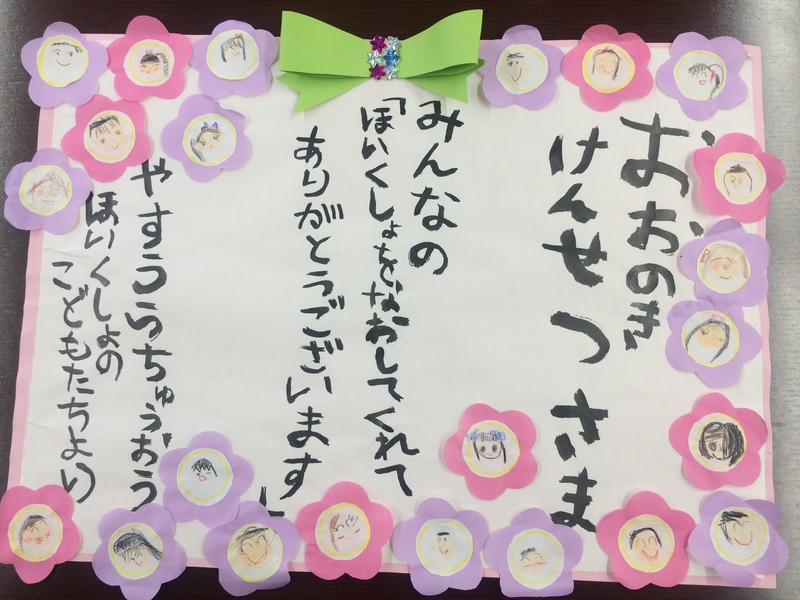 おおのき
けんせつさま
みんなの
「ほいくしょをなおしてくれて
ありがとうございます」
やすうらちゅうおう
ほいくしょの
こどもたちより